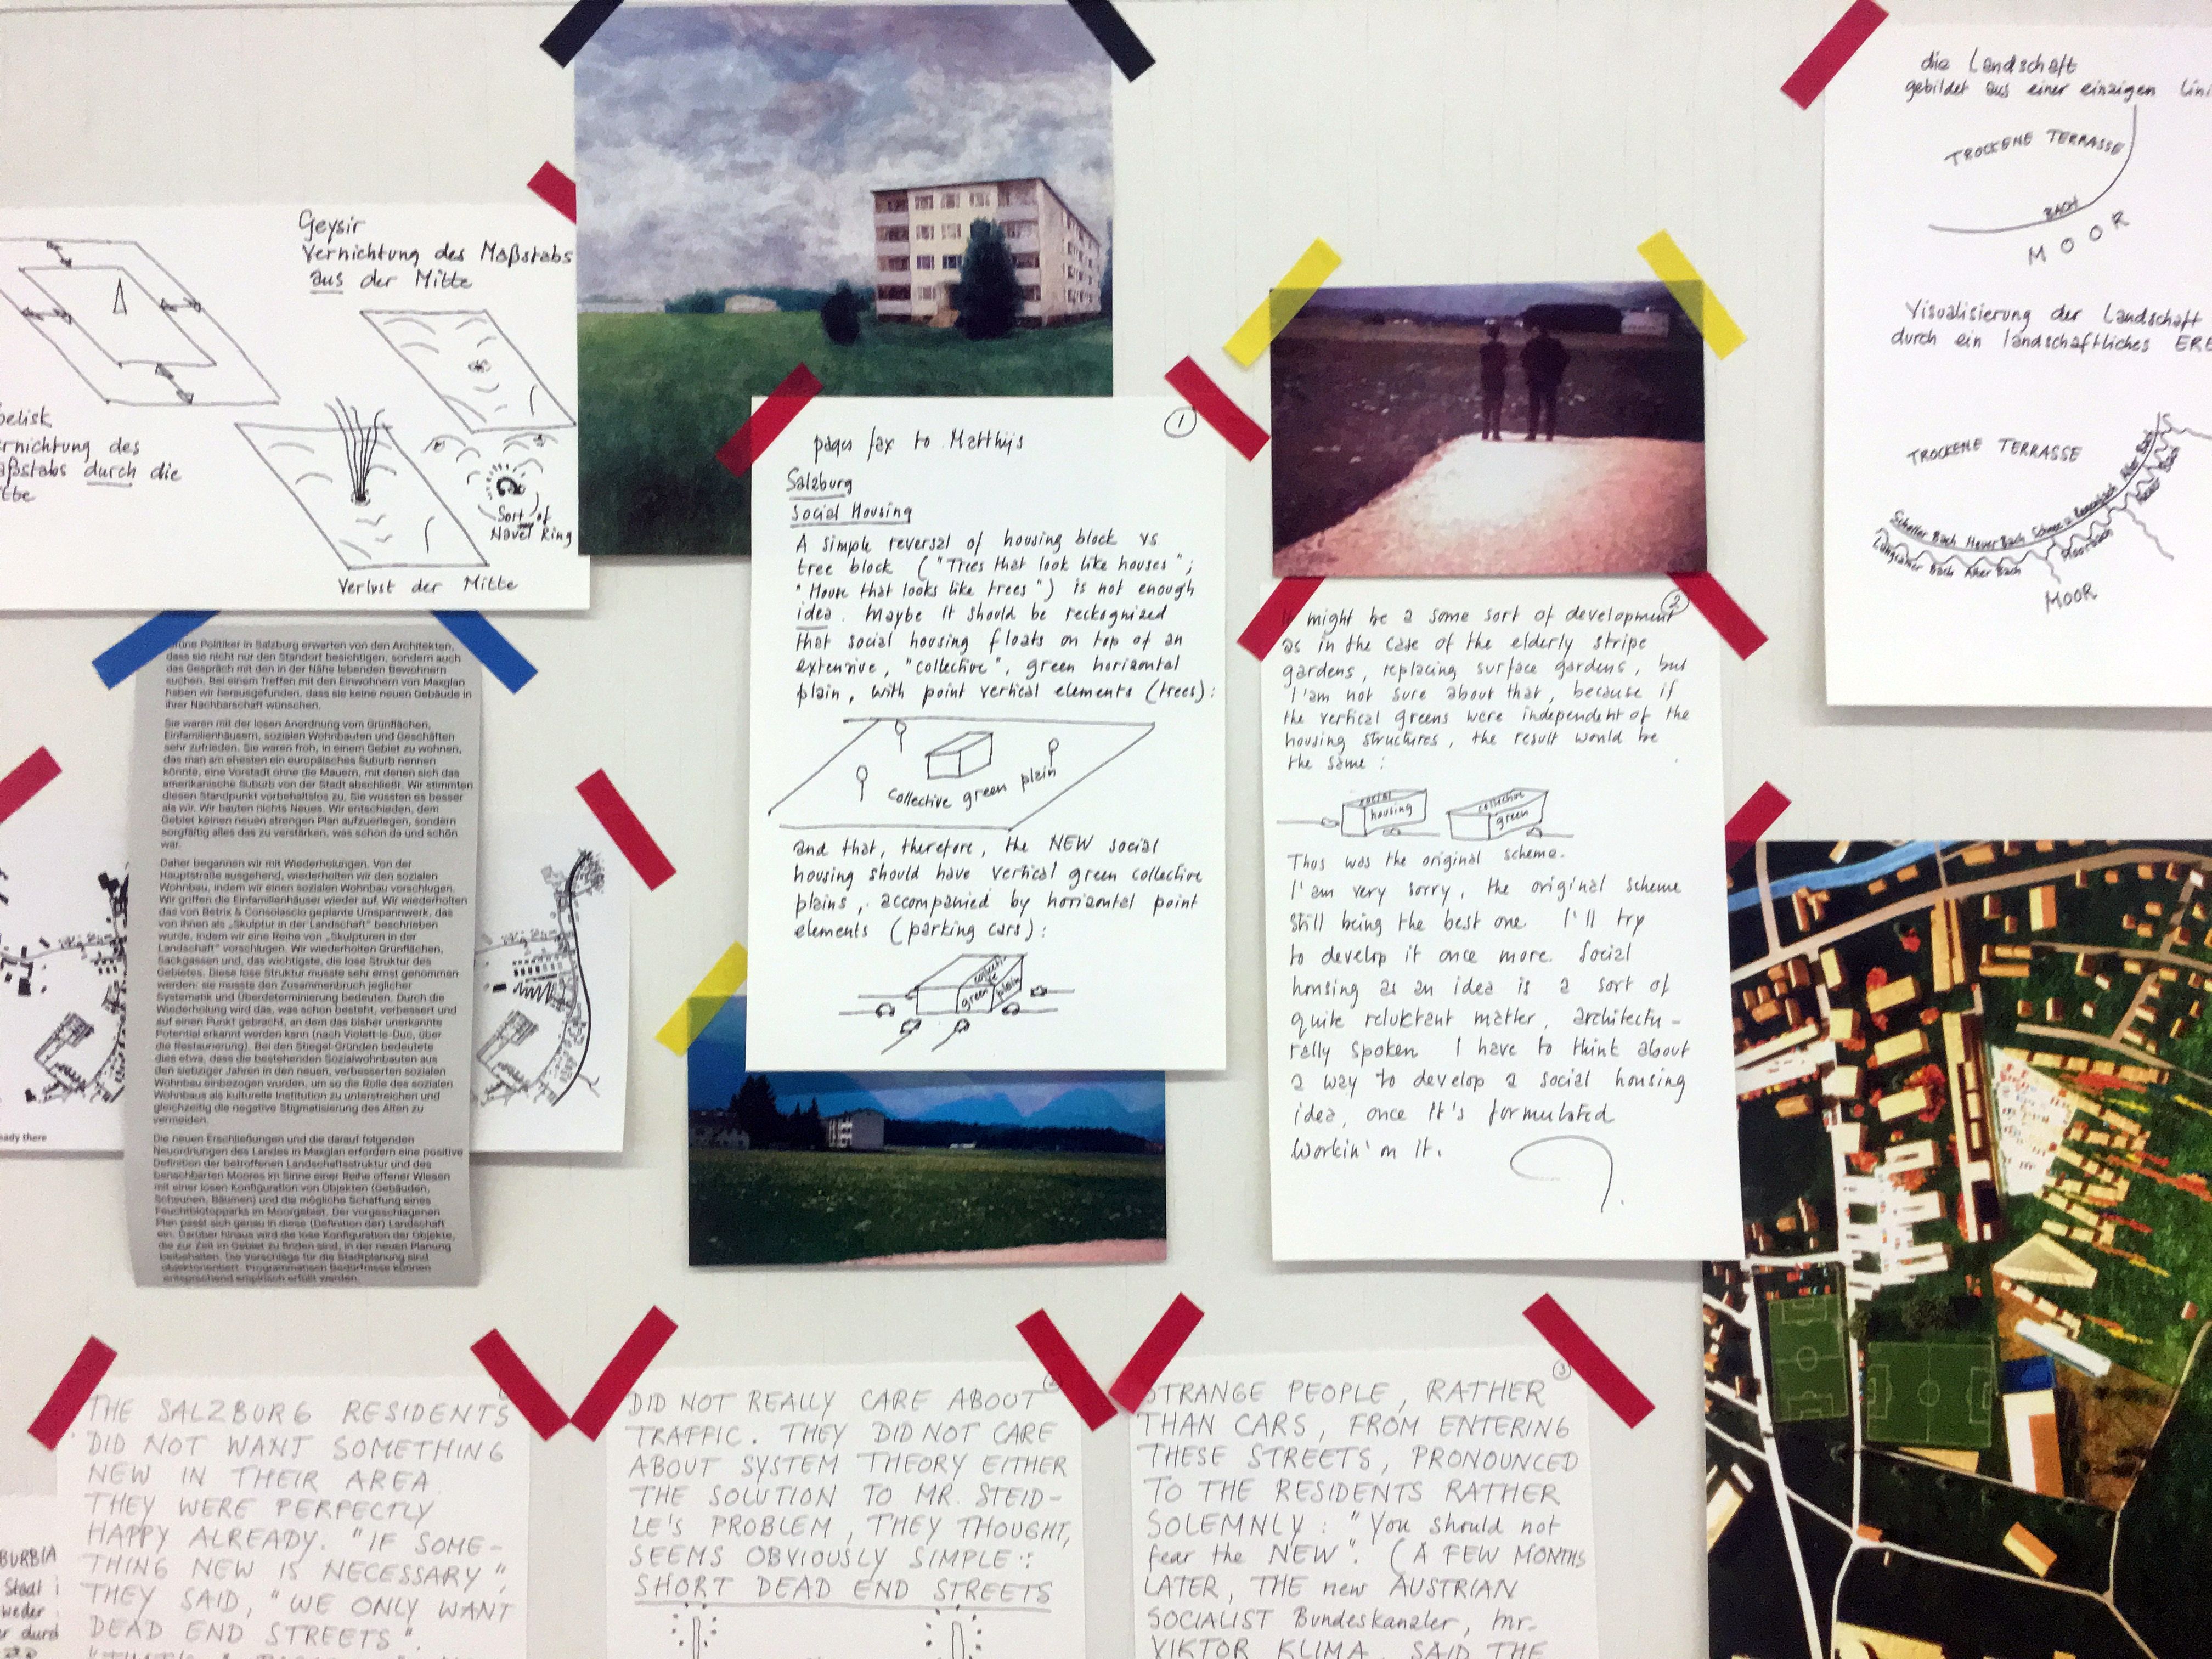 Geysir
Vernichtung des Maßstabs
aus der Mitte
des
Maßstabs durch die
Sort of
Navel Ring
Verlust der Mitte
die Landschaft
gebildet aus einer einzigen
TROCKENE TERRASSE
BACH
MOOR
Visualisierung der Landschaft
durch ein landschaftliches
TROCKENE TERRASSE
Alter Bach
Moorbach
Alter Bach
MOOR
1
pages fax to Matthijs
Salzburg
Social Housing
A simple reversal of housing block vs
tree block ("Trees that look like houses";
"House that looks like trees") is not enough
idea. Maybe it should be reckognized
that social housing floats on top of an
extensive, "collective", green horizontal
plain, with point vertical elements (trees):
collective green plain
and that, therefore, the NEW social
housing should have vertical green collective
plains, accompanied by horizontal point
elements (parking cars):
green
plain
2
It might be a some sort of development
as in the case of the elderly stripe
gardens, replacing surface gardens, but
I'am not sure about that, because if
the vertical greens were independent of the
housing structures, the result would be
the same:
social
housing
collective
green
Thus was the original scheme.
I'am very sorry, the original scheme
still being the best one. I'll try
to develop it once more. Social
housing as an idea is a sort of
quite reluktant matter, architectu-
rally spoken I have to think about
a way to develop a social housing
idea, once it's formulated
Workin' on it.
Politiker in Salzburg erwarten von den Architekten,
dass sie nicht nur den Standort besichtigen, sondern auch
das Gespräch mit den in der Nähe lebenden Bewohnern
suchen. Bei einem Treffen mit den Einwohnern von Maxglan
haben wir herausgefunden, dass sie keine neuen Gebäude in
ihrer Nachbarschaft wünschen.
Sie waren mit der losen Anordnung vom Grünflächen,
Einfamilienhäusern, sozialen Wohnbauten und Geschäften
sehr zufrieden. Sie waren froh, in einem Gebiet zu wohnen,
das man am ehesten ein europäisches Suburb nennen
könnte, eine Vorstadt ohne die Mauern, mit denen sich das
amerikanische Suburb von der Stadt abschließt. Wir stimmten
diesen Standpunkt vorbehaltslos zu. Sie wussten es besser
als wir. Wir bauten nichts Neues. Wir entschieden, dem
Gebiet keinen neuen strengen Plan aufzuerlegen, sondern
sorgfältig alles das zu verstärken, was schon da und schön
war.
Daher begannen wir mit Wiederholungen. Von der
Hauptstraße ausgehend, wiederholten wir den sozialen
Wohnbau, indem wir einen sozialen Wohnbau vorschlugen.
Wir griffen die Einfamilienhäuser wieder auf. Wir wiederholten
das von Betrix & Consolascio geplante Umspannwerk, das
von ihnen als „Skulptur in der Landschaft" beschrieben
wurde, indem wir eine Reihe von „Skulpturen in der
Landschaft" vorschlugen. Wir wiederholten Grünflächen,
Sackgassen und, das wichtigste, die lose Struktur des
Gebietes. Diese lose Struktur musste sehr ernst genommen
werden: sie musste den Zusammenbruch jeglicher
Systematik und Überdeterminierung bedeuten. Durch die
Wiederholung wird das, was schon besteht, verbessert und
auf einen Punkt gebracht, an dem das bisher unerkannte
Potential erkannt werden kann (nach Violett-le-Duc, über
die Restaurierung). Bei den Stiegel-Gründen bedeutete
dies etwa, dass die bestehenden Sozialwohnbauten aus
den siebziger Jahren in den neuen, verbesserten sozialen
Wohnbau einbezogen wurden, um so die Rolle des sozialen
Wohnbaus als kulturelle Institution zu unterstreichen und
gleichzeitig die negative Stigmatisierung des Alten zu
vermeiden.
Die neuen Erschließungen und die darauf folgenden
Neuordnungen des Landes in Maxglan erfordern eine positive
Definition der betroffenen Landschaftsstruktur und des
benachbarten Moores im Sinne einer Reihe offener Wiesen
mit einer losen Konfiguration von Objekten (Gebäuden,
Scheunen, Bäumen) und die mögliche Schaffung eines
Feuchtbiotopparks im Moorgebiet. Der vorgeschlagenen
Plan passt sich genau in diese (Definition der) Landschaft
ein. Darüber hinaus wird die lose Konfiguration der Objekte,
die zur Zeit im Gebiet zu finden sind, in der neuen Planung
beibehalten. Die Vorschläge für die Stadtplanung sind
objektorientiert. Programmatisch Bedürfnisse können
entsprechend empirisch erfüllt werden.
there
THE SALZBURG RESIDENTS
DID NOT WANT SOMETHING
NEW IN THEIR AREA
THEY WERE PERFECTLY
HAPPY ALREADY. "IF SOME-
THING NEW IS NECESSARY",
THEY SAID, "WE ONLY WANT
DEAD END STREETS".
DID NOT REALLY CARE ABOUT
TRAFFIC. THEY DID NOT CARE
ABOUT SYSTEM THEORY EITHER
THE SOLUTION TO MR. STEID-
LE'S PROBLEM, THEY THOUGHT,
SEEMS OBVIOUSLY SIMPLE:
SHORT DEAD END STREETS
3
STRANGE PEOPLE, RATHER
THAN CARS, FROM ENTERING
THESE STREETS, PRONOUNCED
TO THE RESIDENTS RATHER
SOLEMNLY: "You should not
fear the NEW". (A FEW MONTHS
LATER, THE new AUSTRIAN
SOCIALIST Bundeskanzler, mr.
VIKTOR KLIMA, SAID THE